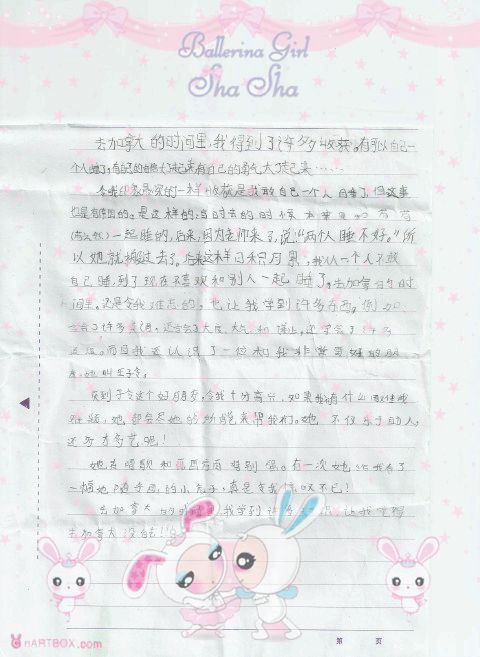 Ballerina Girl
Sha Sha
去加拿大的时间里,我得到了许多收获。有可以自己一
个人睡了,有的自己的勇气大起来……
令我印象最深的一样收获是我敢自己一个人自睡了,但这事
也是有原因的。是这样的,当时去的时候
一起睡的,后来,因为老师来了,说:“两个人睡不好。”所
以她就搬过去了。后来这样习积习累,我从一个人不敢
自己睡,到了现在不喜欢和别人一起睡了。去加拿大的时
间里。还是令我难忘的,也让我学到许多东西,例如:
学会了许多英语,还学会了大度、大气和 ,还学会了许多
。而且我还认识了一位和我非常要好的朋
友,她叫王子令。
交到子令这个好朋友,令我十分高兴,如果我有什么
难题,她都会尽她的所能来帮我们。她不仅乐于助人,
还多才多艺呢!
她在唱歌和画画方面特别强。有一次她给我看了
一幅她随手画的小兔子,真是令我惊叹不已!
去加拿大的时间里我学到许多 ,让我觉得
去加拿大没白去!
HARTBOX.com
第 页